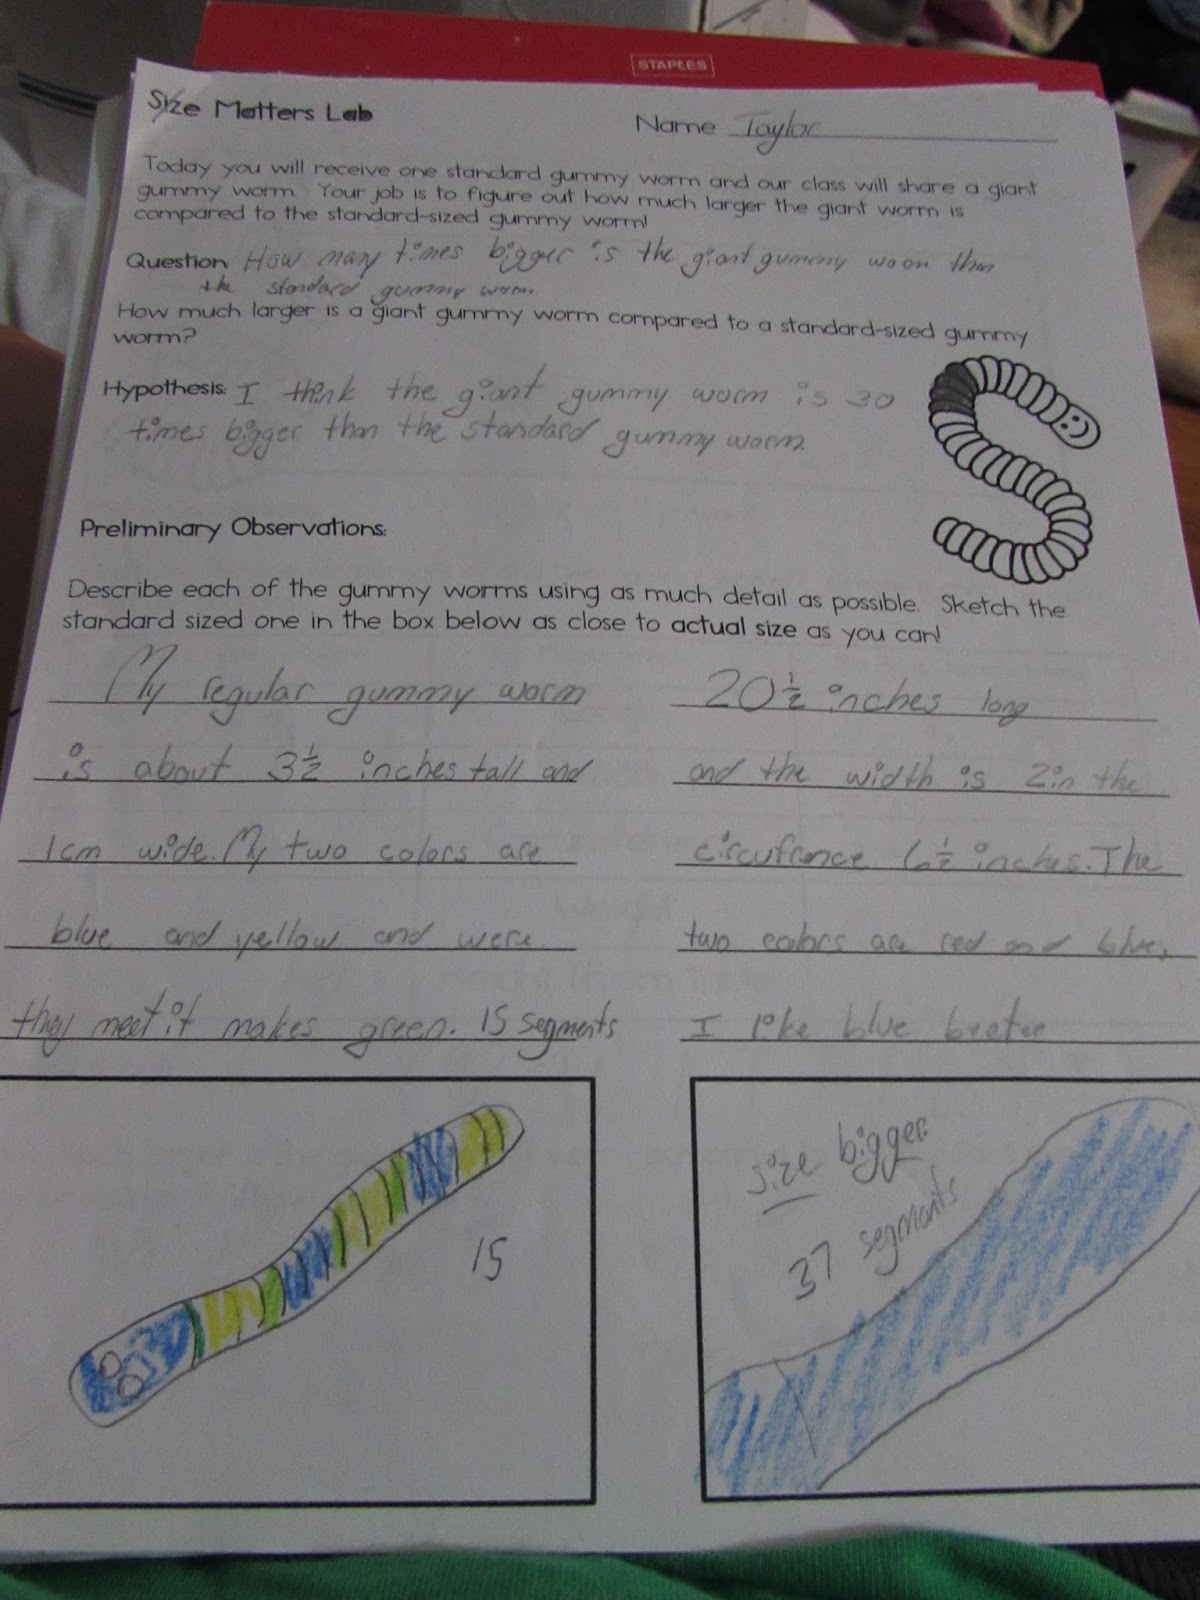 STAPLES
Size Matters Lab
Name Taylor
Today you will receive one standard gummy worm and our class will share a giant
gummy worm. Your job is to figure out how much larger the giant worm is
compared to the standard-sized gummy worm!
Question: How many times bigger is the giant gummy worm than
the standard gummy worm.
How much larger is a giant gummy worm compared to a standard-sized gummy
worm?
Hypothesis: I think the giant gummy worm is 30
times bigger than the standard gummy worm.
Preliminary Observations:
Describe each of the gummy worms using as much detail as possible. Sketch the
standard sized one in the box below as close to actual size as you can!
My regular gummy worm
is about 3½ inches tall and
1cm wide. My two colors are
blue and yellow and were
they meet it makes green. 15 segments
20½ inches long
and the width is 2in the
circufrance 6½ inches. The
two colors are red and blue,
I like blue beeter
15
size bigger
37 segments